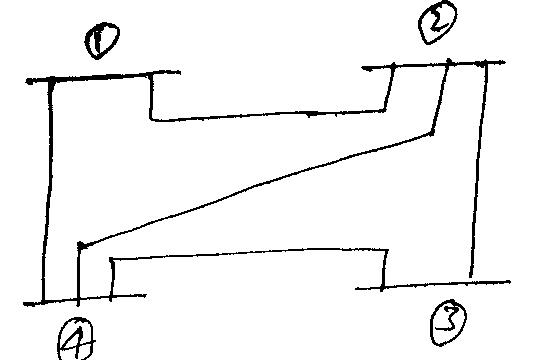 ①
②
④
③